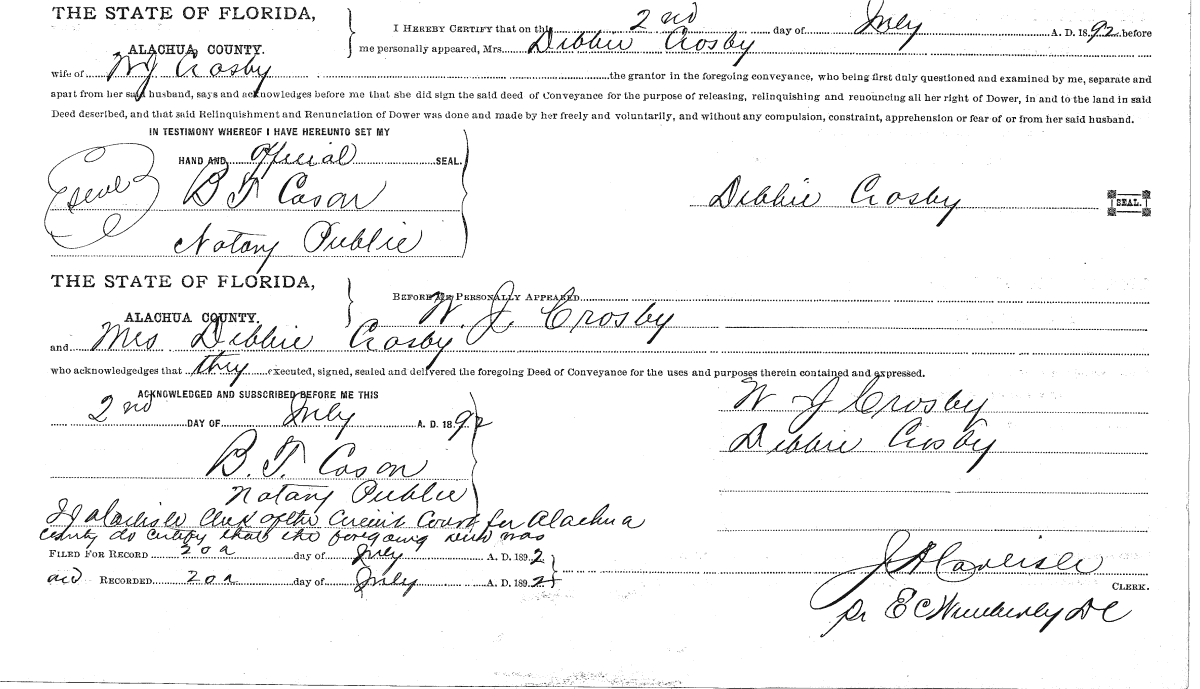 THE STATE OF FLORIDA,
ALACHUA COUNTY.
I HEREBY CERTIFY that on this 2nd day of July A. D. 1892. before
me personally appeared, Mrs. Debbie Crosby
wife of W J Crosby the grantor in the foregoing conveyance, who being first duly questioned and examined by me, separate and
apart from her said husband, says and acknowledges before me that she did sign the said deed of Conveyance for the purpose of releasing, relinquishing and renouncing all her right of Dower, in and to the land in said
Deed described, and that said Relinquishment and Renunciation of Dower was done and made by her freely and voluntarily, and without any compulsion, constraint, apprehension or fear of or from her said husband.
IN TESTIMONY WHEREOF I HAVE HEREUNTO SET MY
HAND AND official SEAL.
B T Cason
Notary Public
Debbie Crosby SEAL.
THE STATE OF FLORIDA,
ALACHUA COUNTY.
BEFORE ME PERSONALLY APPEARED
W. J. Crosby
and Mrs Debbie Crosby
who acknowledgedges that they executed, signed, sealed and delivered the foregoing Deed of Conveyance for the uses and purposes therein contained and expressed.
ACKNOWLEDGED AND SUBSCRIBED BEFORE ME THIS
2nd DAY OF July A. D. 1892
B. T. Cason
Notary Public
W J Crosby
Debbie Crosby
Clerk of the Circuit Court for Alachua
County do certify that the foregoing deed was
FILED FOR RECORD 20 day of July A. D. 1892
and RECORDED 20 day of July A. D. 1892
J A Carlisle
CLERK.
pr E C Wimberly DC